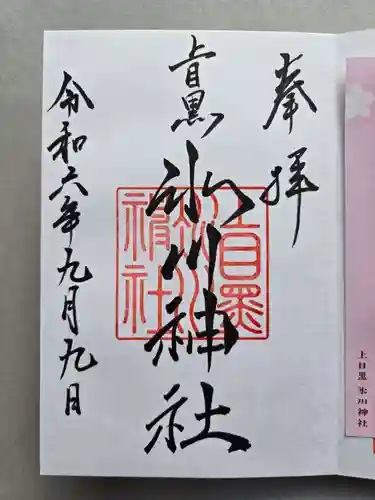 奉拝
上目黒
氷川神社
令和六年九月九日
上目黒氷川神社
上目黒 氷川神社